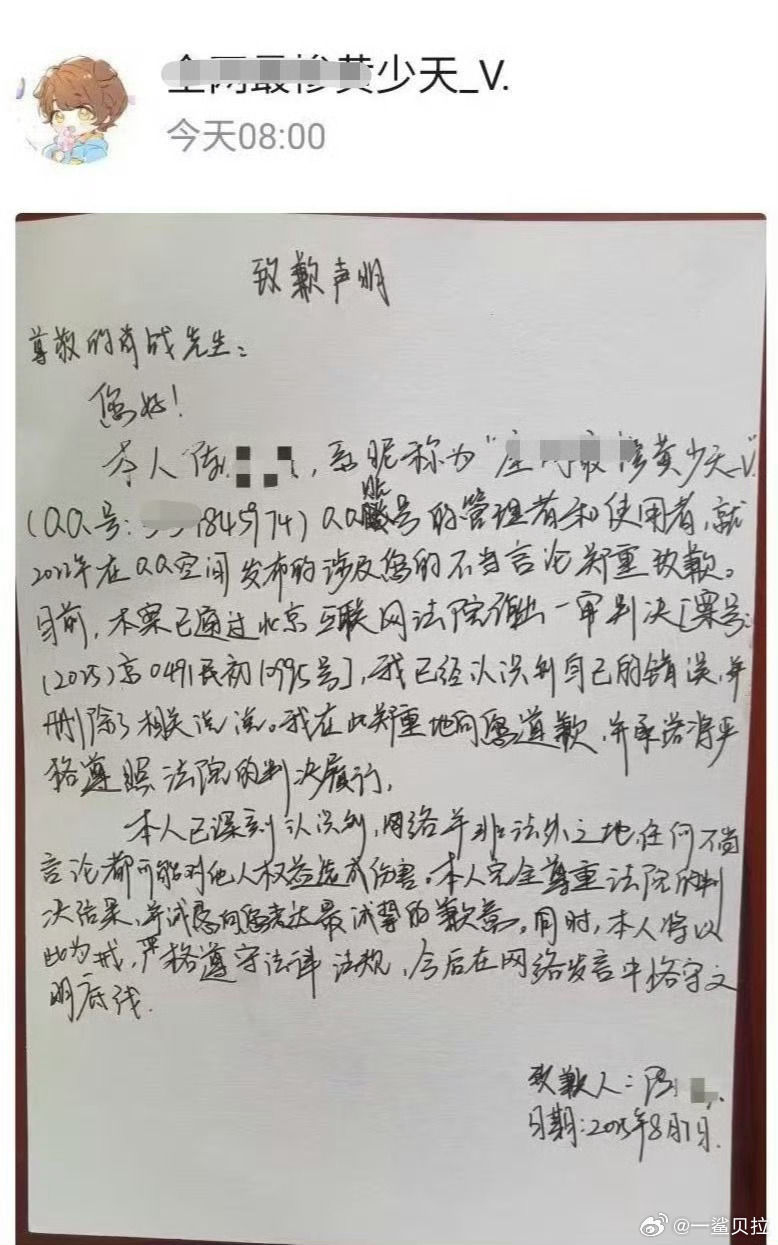 全网最惨黄少天_V.
今天08:00
致歉声明
尊敬的肖战先生:
您好!
本人陈,系昵称为“全网最惨黄少天_V.
(QQ号:845974)QQ账号的管理者和使用者,就
2022年在QQ空间发布的涉及您的不当言论郑重致歉。
目前,本案已通过北京互联网法院作出一审判决[案号:
(2025)京0491民初10995号],我已经认识到自己的错误,并
删除了相关说说。我在此郑重地向您道歉,并承诺将严
格遵照法院的判决履行,
本人已深刻认识到,网络并非法外之地,任何不当
言论都可能对他人权益造成伤害。本人完全尊重法院的判
决结果,并诚恳向您表达最诚挚的歉意。同时,本人将以
此为戒,严格遵守法律法规,今后在网络发言中恪守文
明底线.
致歉人:陈
日期:2025年8月7日.
@一鲨贝拉